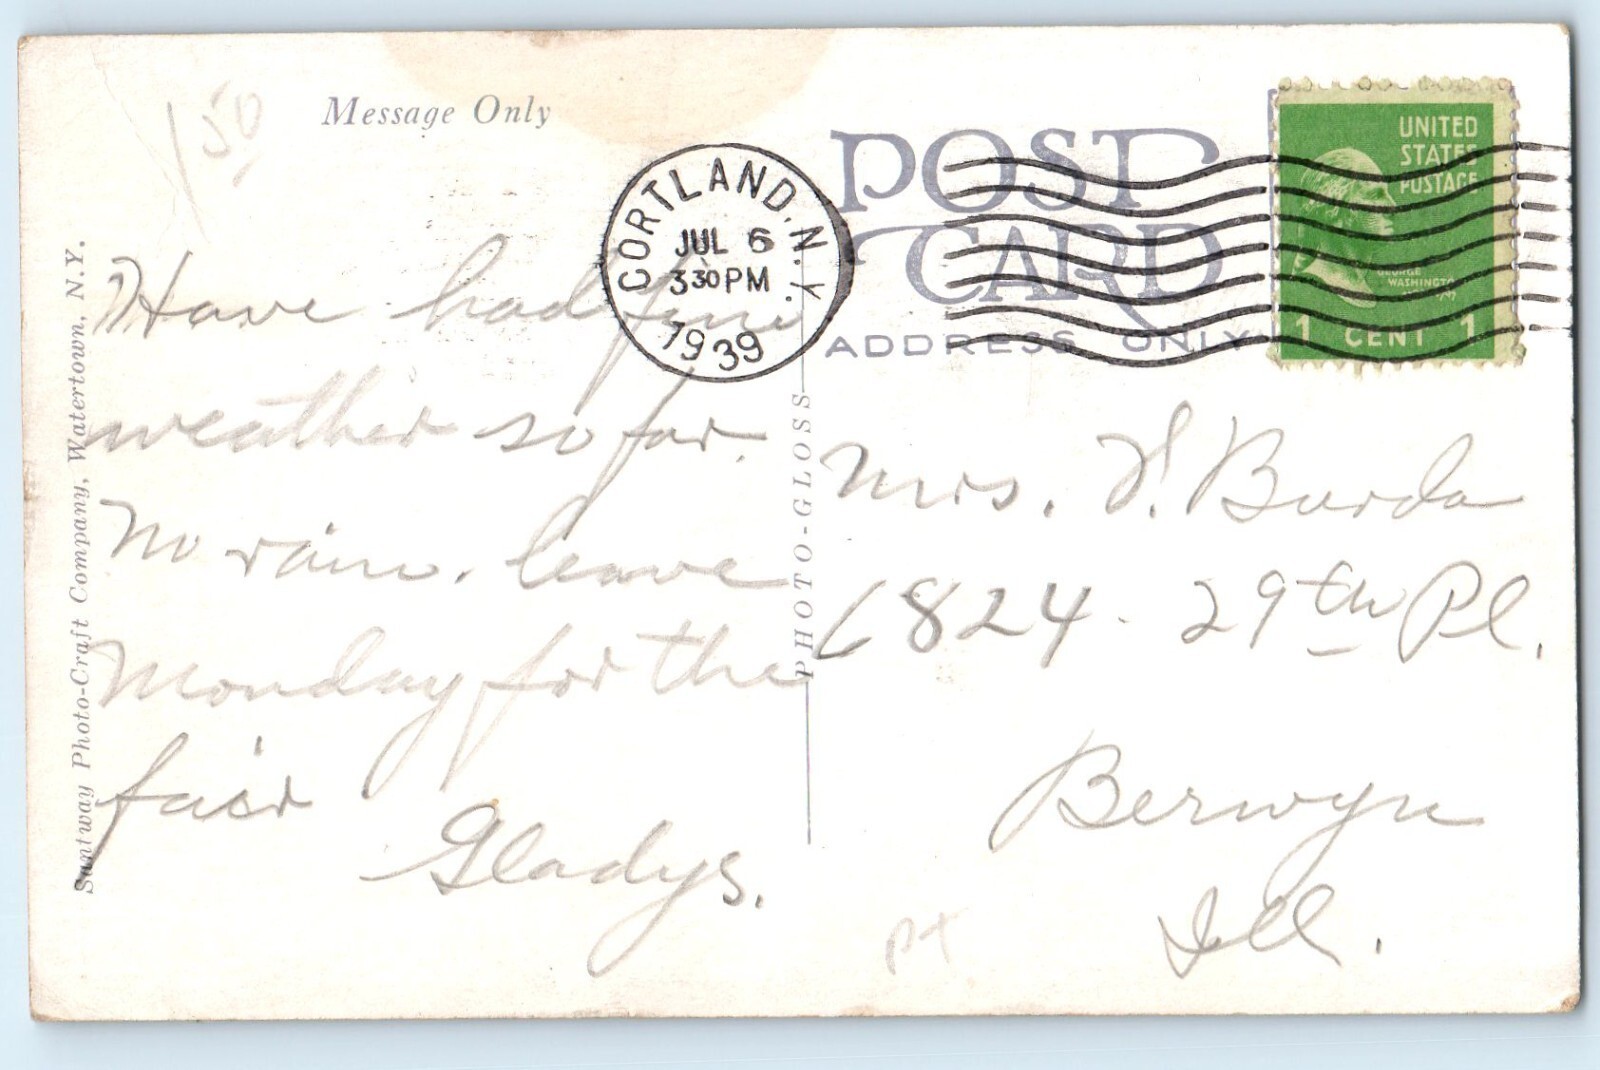 150
Message Only
POST
CARD
ADDRESS ONLY
CORTLAND, N.Y.
JUL 6
3 30 PM
1939
UNITED
STATES
POSTAGE
GEORGE
WASHINGTON
1 CENT 1
Have had fine
weather so far.
No rain. leave
Monday for the
fair
Gladys.
Mrs. V. Burda
6824 - 29th Pl.
Berwyn
Ill.
PT
PHOTO-GLOSS
Santway Photo-Craft Company, Watertown, N.Y.